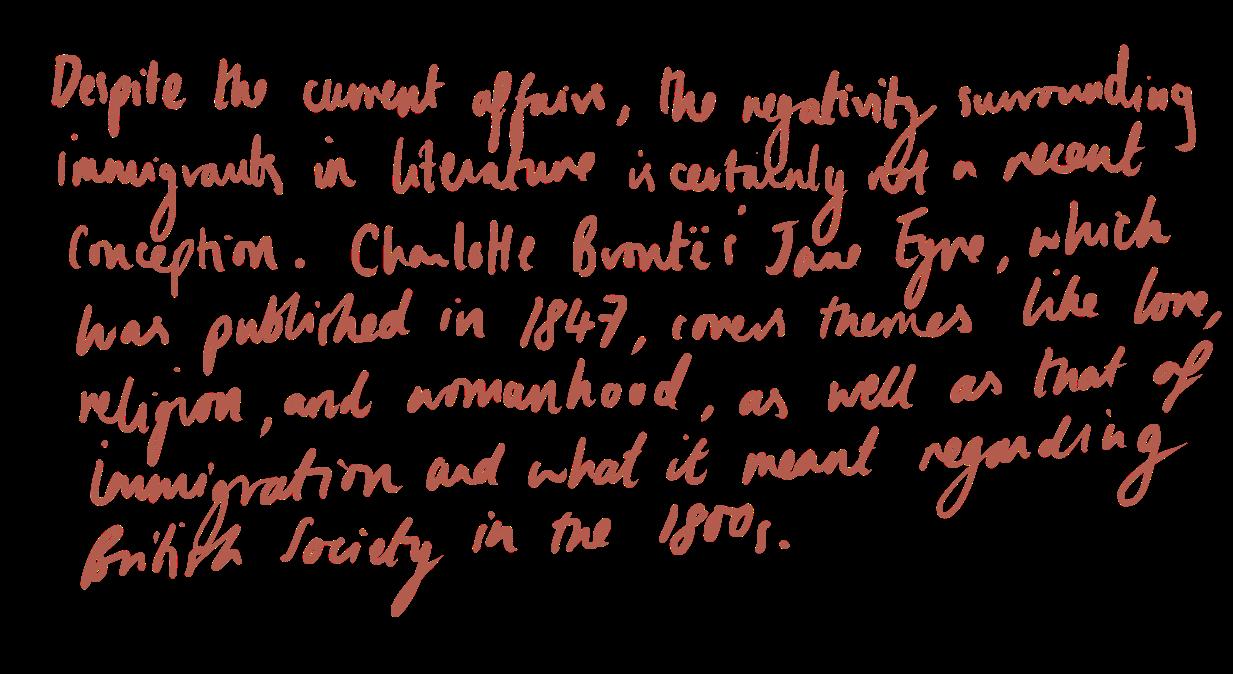 Despite the current affairs, the negativity surrounding
immigrants in literature is certainly not a recent
conception. Charlotte Brontë's Jane Eyre, which
was published in 1847, covers themes like love,
religion, and womanhood, as well as that of
immigration and what it meant regarding
British Society in the 1800s.